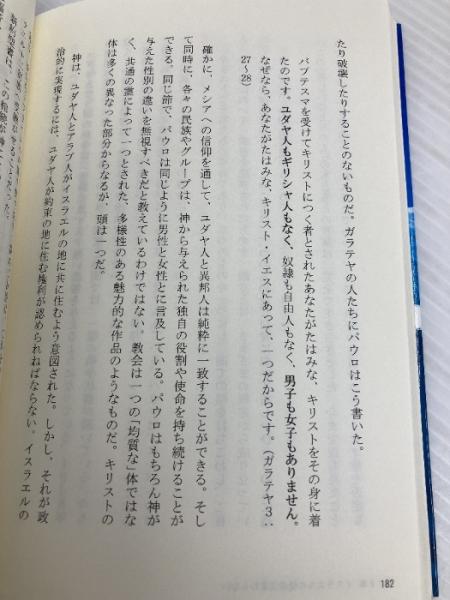 たり破壊したりすることのないものだ。ガラテヤの人たちにパウロはこう書いた。
バプテスマを受けてキリストにつく者とされたあなたがたはみな、キリストをその身に着
たのです。ユダヤ人もギリシャ人もなく、奴隷も自由人もなく、男子も女子もありません。
なぜなら、あなたがたはみな、キリスト・イエスにあって、一つだからです。（ガラテヤ3：
27〜28）
確かに、メシアへの信仰を通して、ユダヤ人と異邦人は純粋に一致することができる。そし
て同時に、各々の民族やグループは、神から与えられた独自の役割や使命を持ち続けることが
できる。同じ節で、パウロは同じように男性と女性とに言及している。パウロはもちろん神が
与えた性別の違いを無視すべきだと教えているわけではない。教会は一つの「均質な」体ではな
く、共通の霊によって一つとされた、多様性のある魅力的な作品のようなものだ。キリストの
体は多くの異なった部分からなるが、頭は一つだ。
神は、ユダヤ人とアラブ人がイスラエルの地に共に住むよう意図された。しかし、それが政
治的に実現するには、ユダヤ人が約束の地に住む権利が認められねばならない。イスラエルの
182